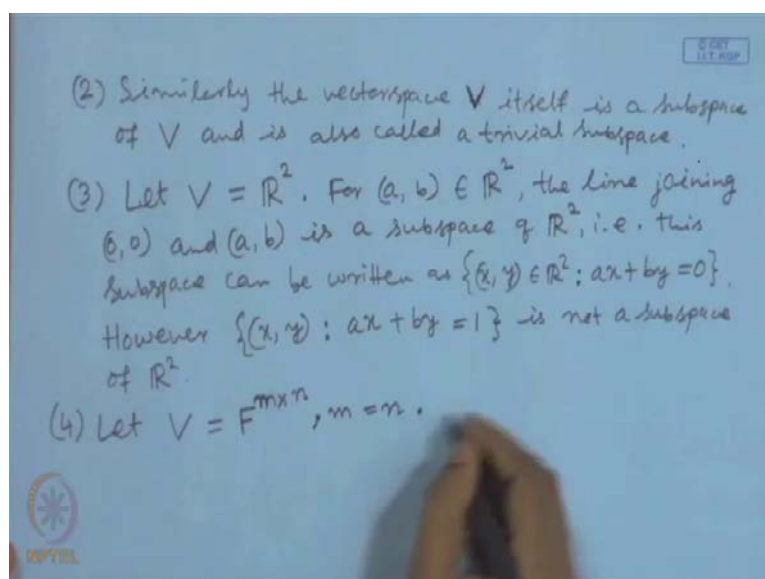 © CET
I.I.T. KGP
(2) Similarly the vectorspace V itself is a subspace
of V and is also called a trivial subspace.
(3) Let V = ℝ². For (a, b) ∈ ℝ², the line joining
(0,0) and (a,b) is a subspace of ℝ², i.e. this
subspace can be written as {(x, y) ∈ ℝ² : ax + by = 0}.
However {(x, y) : ax + by = 1} is not a subspace
of ℝ².
(4) Let V = F^{m×n}, m = n.
NPTEL